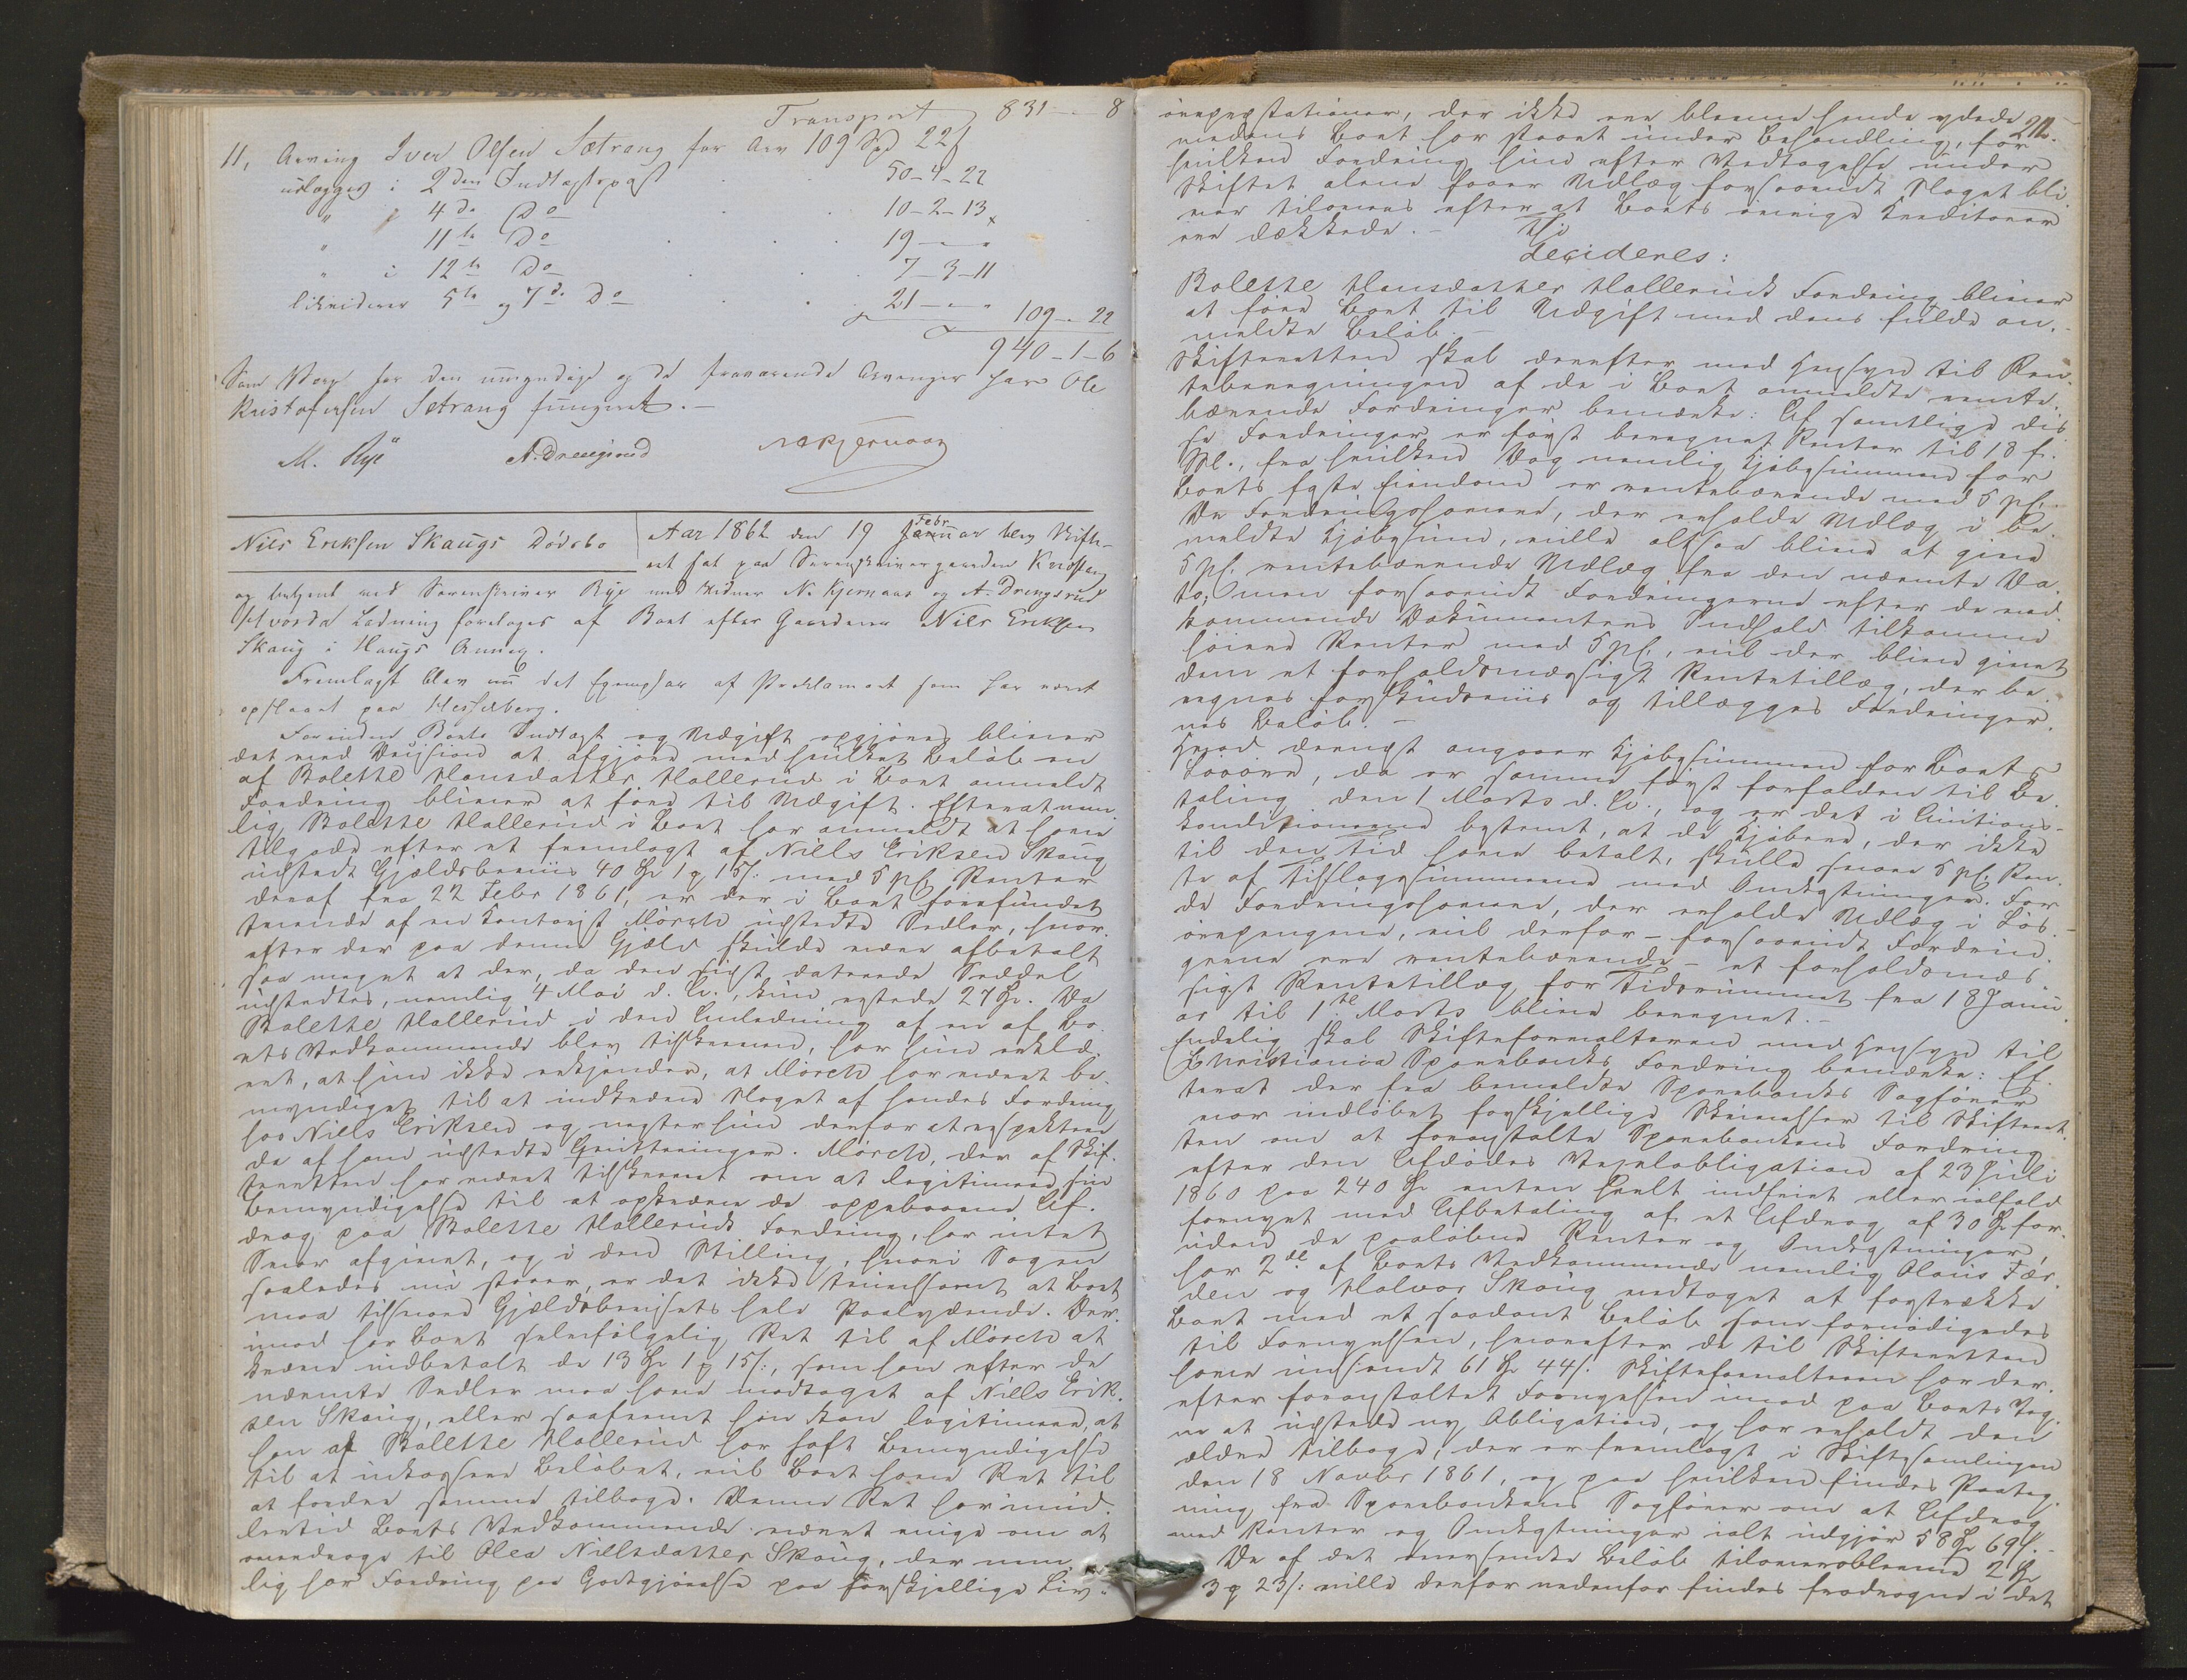 Transport 831 - " - 8
11, Arving Iver Olsen Sætrang for Arv 109 Spd 22 s
udlægges i 2den Indtægtspost . . 50-4-22
" " 4de Do . . 10-2-13
" " 11te Do . . 19 - " - "
" i 12te Do . . 7-3-11
likviderer 5te og 7de Do . . 21 - " - "
109 - " 22
940-1-6
Som Værge for den umyndige og de fraværende Arvinger har Ole
Kristofersen Setrang fungeret. -
M. Rye A. Drengsrud N. Kjernaas
Nils Eriksen Skaugs Dödsbo
Aar 1862 den 19 Febr Januar blev Skifte-
ret sat paa Sorenskrivergaarden
og betjent ved Sorenskriver Rye med Vidner N. Kjernaas og A. Drengsrud
Hvorda Ladning foretoges af Boet efter Gaardmand Niels Eriksen
Skaug i Haugs Annex.
Fremlagt blev nu det Exemplar af Proklamaet som har været
opslaaet paa Hesselberg.
Forinden Boets Indtægt og Udgift opgjöres bliver
det ved Decision at afgjöre med hvilket Belöb en
af Bolette Hansdatter Hallerud i Boet anmeldt
Fordring bliver at före til Udgift. Efterat nem-
lig Bolette Hallerud i Boet har anmeldt at have
tilgode efter et fremlagt af Niels Eriksen Skaug
udstedt Gjældsbeviis 40 Spd 1 ort 15 s: med 5 pCt Renter
deraf fra 22 Febr 1861, er der i Boet forefundet
tvende af en Kontorist Mörch udstedte Sedler, hvor-
efter der paa denne Gjæld skulde være afbetalt
saa meget at der, da den sidst daterede Seddel
udstedtes, nemlig 4 Mai d. A., kun restede 27 Spd. Da
Bolette Hallerud i den Anledning af en af Bo-
ets Vedkommende blev tilskreven, har hun erklæ-
ret, at hun ikke erkjender, at Mörch har været be-
myndiget til at indkræve Noget af hendes Fordring
hos Niels Eriksen og negter hun derfor at respektere
de af ham udstedte Qvitteringer. Mörch, der af Skif-
teretten har været tilskrevet om at legitimere sin
Bemyndigelse til at opkræve de oppebaarne Af-
drag paa Bolette Halleruds Fordring, har intet
Svar afgivet, og i den Stilling, hvori Sagen
saaledes nu staaer, er det ikke tvivlsomt at Boet
maa tilsvare Gjældsbevisets hele Paalydende. Der-
imod har Boet selvfölgelig Ret til af Mörch at
kræve indbetalt de 13 Spd 1 ort 15 s:, som han efter de
nævnte Sedler maa have modtaget af Niels Erik-
sen Skaug, eller saafremt han kan legitimere, at
han af Bolette Hallerud har havt Bemyndigelse
til at inkassere Belöbet, vil Boet have Ret til
at fordre samme tilbage. Denne Ret har imid-
lertid Boets Vedkommende været enige om at
overdrage til Olea Nielsdatter Skaug, der nem-
lig har Fordring paa Godtgjörelse paa forskjellige Liv-
örepræstationer, der ikke ere blevne hende ydede
212.
medens Boet har staaet under Behandling, for
hvilken Fordring hun efter Vedtagelse under
Skiftet alene faaer Udlæg forsaavidt Noget bli-
ver tilovers efter at Boets övrige Kreditorer
ere dækkede. - Thi
decideres:
Bolette Hansdatter Halleruds Fordring bliver
at före Boet til Udgift med dens fulde an-
meldte Belöb. -
Skifteretten skal derefter med Hensyn til Ren-
teberegningen af de i Boet anmeldte rente-
bærende Fordringer bemærke: Af samtlige dis-
se Fordringer er först beregnet Renter til 18 f.
M., fra hvilken Dag nemlig Kjöbesummen for
Boets faste Eiendom er rentebærende med 5 pCt.
De Fordringshavere, der erholde Udlæg i be-
meldte Kjöbesum, ville altsaa blive at give
5 pCt. rentebærende Udlæg fra den nævnte Da-
to, men forsaavidt Fordringerne efter de ved-
kommende Dokumenters Indhold tilkomme
höiere Renter end 5 pCt., vil der blive givet
dem et forholdsmæssigt Rentetillæg, der be-
regnes forskudsviis og tillægges Fordringer-
nes Belöb. -
Hvad dernæst angaaer Kjöbesummen for Boets
Lösöre, da er samme först forfalden til Be-
taling den 1 Marts d. A., og er det i Auctions-
konditionerne bestemt, at de Kjöbere, der ikke
til den Tid have betalt, skulle svare 5 pCt. Ren-
te af Tilslagssummerne med Omkostninger. For
de Fordringshavere, der erholde Udlæg i Lös-
örepengene, vil derfor - forsaavidt Fordrin-
gerne ere rentebærende - et forholdsmæs-
sigt Rentetillæg for Tidsrummet fra 18 Janu-
ar til 1te Marts blive beregnet. -
Endelig skal Skifteforvalteren med Hensyn til
Christiania Sparebanks Fordring bemærke: Ef-
terat der fra bemeldte Sparebanks Sagförer
var indlöbet forskjellige Skrivelser til Skifteret-
ten om at foranstalte Sparebankens Fordring
efter den Afdödes Vexelobligation af 23 Juli
1860 paa 240 Spd enten heelt indfriet eller ialfald
fornyet med Afbetaling af et Afdrag af 30 Spd for-
uden de paalöbne Renter og Omkostninger,
har 2de af Boets Vedkommende nemlig Olaus Fær-
den og Halvor Skaug vedtaget at forstrække
Boet med et saadant Belöb som fornödigedes
til Fornyelsen, hvorefter de til Skifteretten
have indsendt 61 Spd 44 s. Skifteforvalteren har der-
efter foranstaltet Fornyelsen imod paa Boets Veg-
ne at udstede ny Obligation, og har erholdt den
ældre tilbage, der er fremlagt i Skiftesamlingen
den 18 Novbr 1861, og paa hvilken findes Paateg-
ning fra Sparebankens Sagförer om at Afdrag
med Renter og Omkostninger ialt udgjör 58 Spd 69 s. -
De af det oversendte Belöb tiloversblevne 2 Spd
3 ort 23 s: ville derfor nedenfor findes fradragne i det